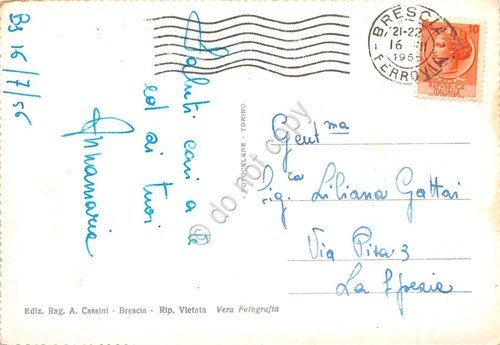 Bs 16/7/56
Saluti cari a te
ed ai tuoi
Annamaria
BRESCIA
21-22
16 VII
195
FERROVIA
10
Gent ma
Sig. ca Liliana Gattai
Via Pisa 3
La Spezia
FOTOCELERE - TORINO
do not copy
Ediz. Rag. A. Cassini - Brescia - Rip. Vietata Vera Fotografia